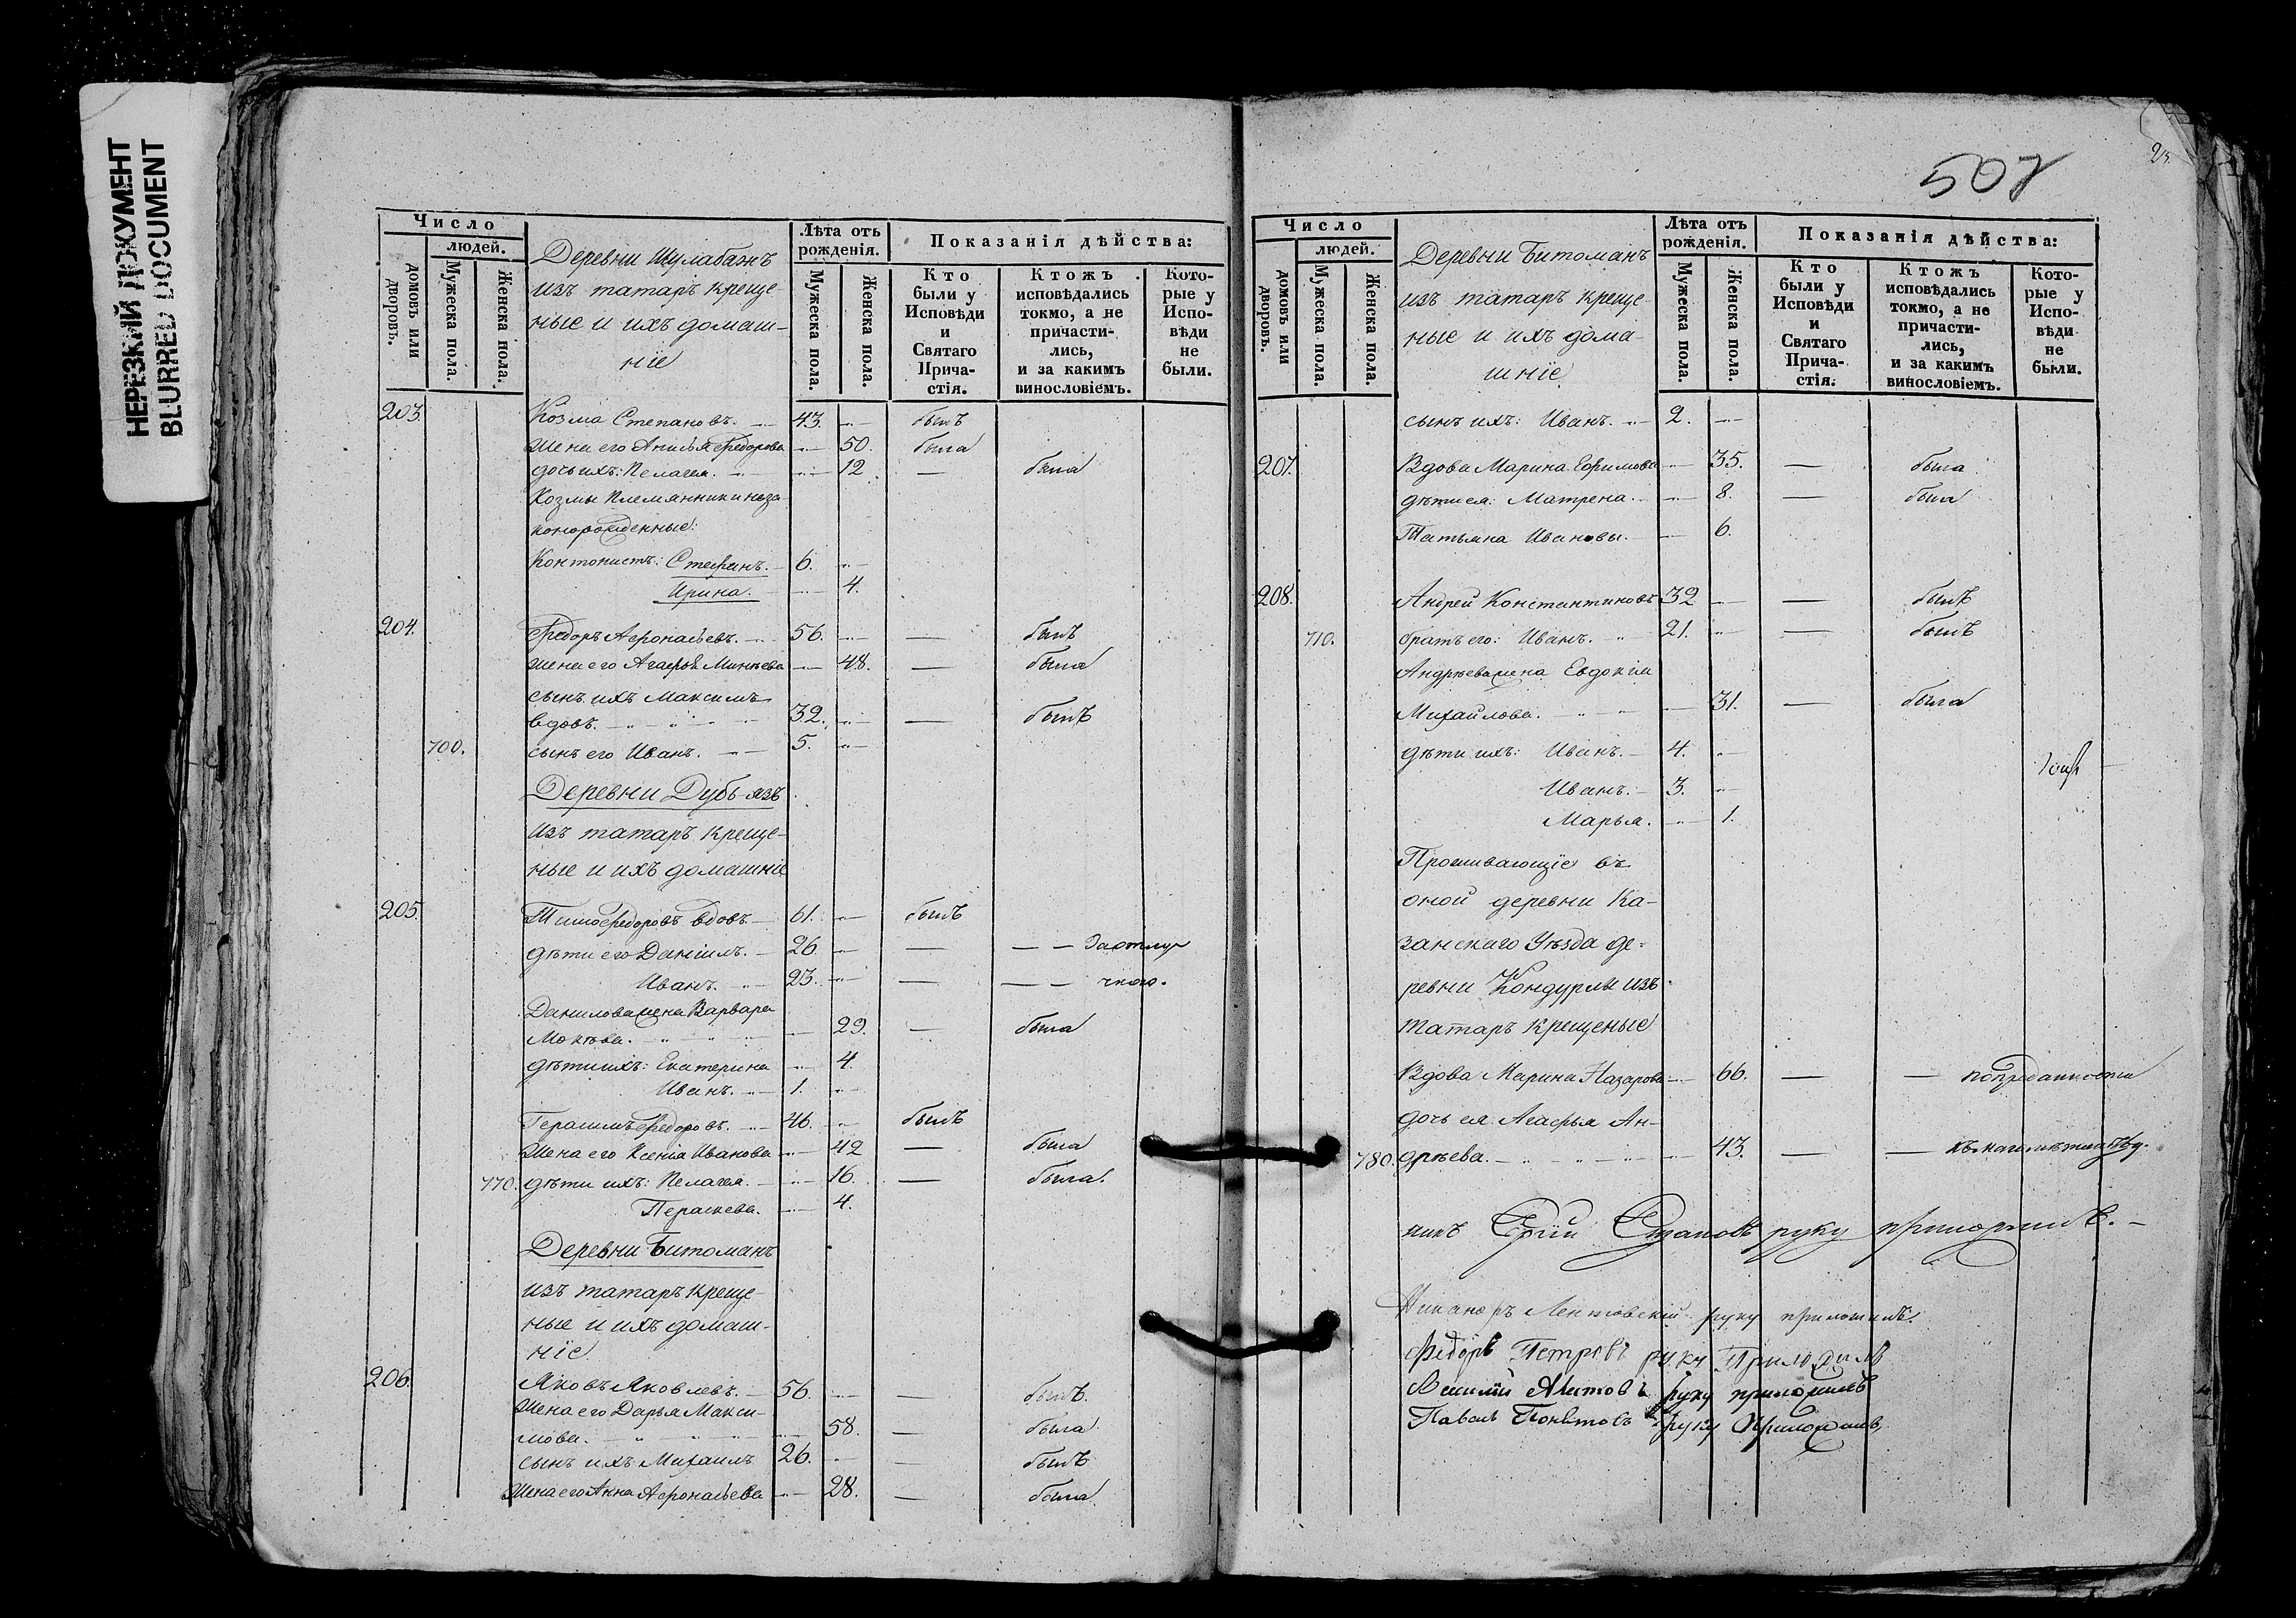 НЕРЕЗКИЙ ДОКУМЕНТ
BLURRED DOCUMENT
Число
людей.
домовъ или дворовъ.
Мужеска пола.
Женска пола.
Деревни Шулабашъ
изъ татаръ креще-
ные и ихъ домаш-
ніе
Лѣта отъ рожденія.
Мужеска пола.
Женска пола.
Показанія дѣйства:
Кто были у Исповѣди и Святаго Прича-стія.
Ктожъ исповѣдались токмо, а не причасти-лись, и за какимъ винословіемъ.
Кото-рые у Испо-вѣди не были.
203. Козма Степановъ. 43. былъ
Жена его Анисья Федорова 50. была
дочь ихъ: Пелагея. 12. — была
Козмы племянники неза-
конорожденные:
Контонистъ: Стефанъ. 6.
Ирина. 4.
204. Федоръ Афонасьевъ. 56. — былъ
Жена его Агафья Минеева 48. — была
сынъ ихъ Максимъ
вдовъ. 32. — былъ
700. сынъ его Иванъ. 5.
Деревни Дубъязъ
изъ татаръ креще-
ные и ихъ домашніе
205. Федоровъ вдовъ 61. былъ
дѣти его Даніилъ. 26 — — — За отлу
Иванъ. 23. — — — чкою.
Данилова жена Варвара
29. — была
дѣти ихъ: Екатерина 4.
Иванъ. 1.
Герасимъ Федоровъ. 46. былъ
Жена его Ксенія Иванова 42 — была
770. дѣти ихъ: Пелагея. 16. — была.
Параскева. 4.
Деревни Битоманъ
изъ татаръ креще-
ные и ихъ домаш-
ніе.
206. Яковъ Яковлевъ. 56. — былъ.
Жена его Дарья Макси-
мова. 58. — была.
сынъ ихъ Михаилъ 26. — былъ
Жена его Анна Афонасьева 28. — была.
507
Число
людей.
домовъ или дворовъ.
Мужеска пола.
Женска пола.
Деревни Битоманъ
изъ татаръ креще-
ные и ихъ дома-
шніе
Лѣта отъ рожденія.
Мужеска пола.
Женска пола.
Показанія дѣйства:
Кто были у Исповѣди и Святаго Прича-стія.
Ктожъ исповѣдались токмо, а не причасти-лись, и за какимъ винословіемъ.
Кото-рые у Испо-вѣди не были.
сынъ ихъ: Иванъ. 2.
207. Вдова Марина Ефимова 35. — была
дѣти ея: Матрена. 8. — была
Татьяна Ивановы. 6.
208. Андрей Константиновъ 32 — былъ
710. братъ его: Иванъ. 21. — былъ
Андреева жена Евдокія
Михайлова. 31. — была
дѣти ихъ: Иванъ. 4.
Иванъ. 3.
Марья. 1.
Проживающіе въ
оной деревни Ка-
занскаго Уѣзда де-
ревни Кондурлы изъ
татаръ крещеные
Вдова Марина Назарова 66. — — по преданности
дочь ея Агафья Ан-
780. дреева. 43. — — къ магометанству.
никъ Степановъ руку приложилъ.
Никаноръ Лентовскій руку приложилъ.
Федоръ Петровъ руку Приложилъ
руку приложилъ
Павелъ руку Приложилъ